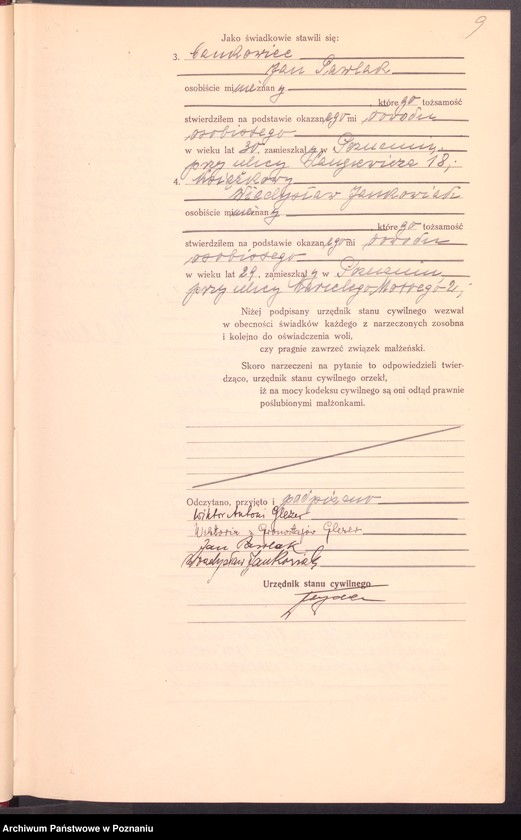 9
Jako świadkowie stawili się:
3.
Jan Pawlak
osobiście mi nieznany
, którego tożsamość
stwierdziłem na podstawie okazanego mi dowodu
osobistego
w wieku lat 30, zamieszkały w Poznaniu,
przy ulicy Langiewicza 18,-
4. książkowy
Władysław Jankowiak
osobiście mi nieznany
, którego tożsamość
stwierdziłem na podstawie okazanego mi dowodu
osobistego
w wieku lat 29, zamieszkały w Poznaniu,
przy ulicy 2,-
Niżej podpisany urzędnik stanu cywilnego wezwał
w obecności świadków każdego z narzeczonych zosobna
i kolejno do oświadczenia woli,
czy pragnie zawrzeć związek małżeński.
Skoro narzeczeni na pytanie to odpowiedzieli twier-
dząco, urzędnik stanu cywilnego orzekł,
iż na mocy kodeksu cywilnego są oni odtąd prawnie
poślubionymi małżonkami.
Odczytano, przyjęto i podpisano
Wiktor Antoni Glezer
Wiktoria z Glezer
Jan Pawlak
Władysław Jankowiak
Urzędnik stanu cywilnego
Archiwum Państwowe w Poznaniu